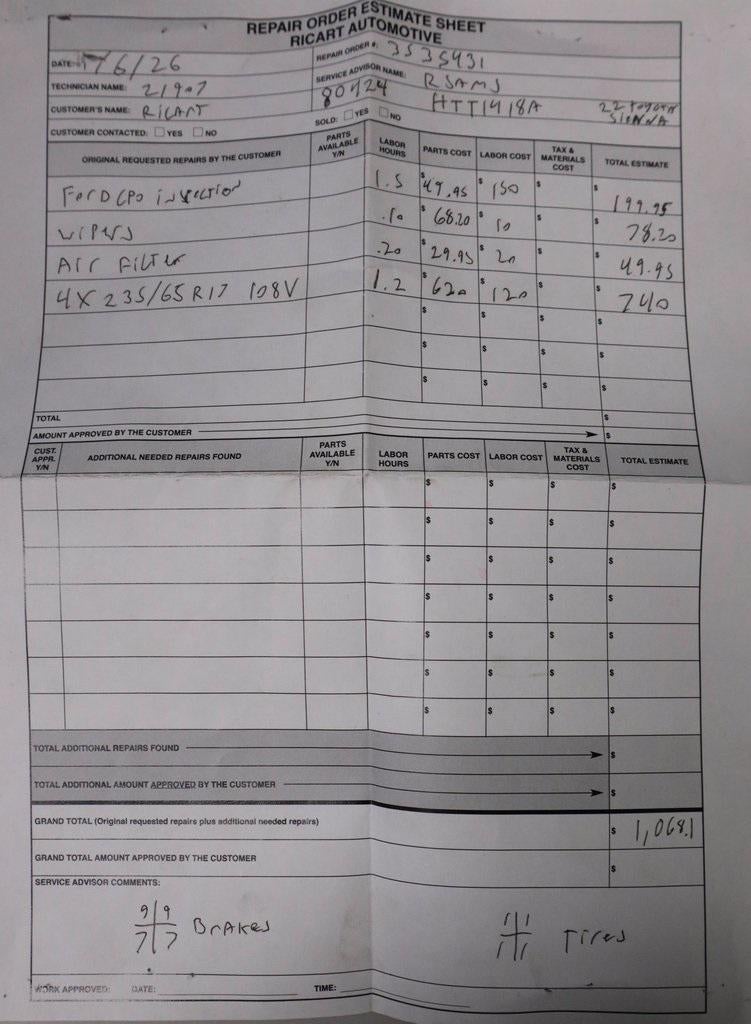 REPAIR ORDER ESTIMATE SHEET
RICART AUTOMOTIVE
DATE: 7/6/26 REPAIR ORDER #: 3535431
TECHNICIAN NAME: 21907 SERVICE ADVISOR NAME: RSAMS
CUSTOMER'S NAME: RICART 80424 HTT1418A 22 TOYOTA SIENNA
CUSTOMER CONTACTED: YES NO SOLD: YES NO
ORIGINAL REQUESTED REPAIRS BY THE CUSTOMER PARTS AVAILABLE Y/N LABOR HOURS PARTS COST LABOR COST TAX & MATERIALS COST TOTAL ESTIMATE
FORD CPO inspection 1.5 $49.95 $150 $ $199.95
WIPERS .10 $68.20 $10 $ $78.20
AIR FILTER .20 $29.95 $20 $ $49.95
4X 235/65R17 108V 1.2 $620 $120 $ $740
$ $ $ $
$ $ $ $
$ $ $ $
TOTAL $
AMOUNT APPROVED BY THE CUSTOMER $
CUST. APPR. Y/N ADDITIONAL NEEDED REPAIRS FOUND PARTS AVAILABLE Y/N LABOR HOURS PARTS COST LABOR COST TAX & MATERIALS COST TOTAL ESTIMATE
$ $ $ $
$ $ $ $
$ $ $ $
$ $ $ $
$ $ $ $
$ $ $ $
$ $ $ $
TOTAL ADDITIONAL REPAIRS FOUND $
TOTAL ADDITIONAL AMOUNT APPROVED BY THE CUSTOMER $
GRAND TOTAL (Original requested repairs plus additional needed repairs) $1,068.1
GRAND TOTAL AMOUNT APPROVED BY THE CUSTOMER $
SERVICE ADVISOR COMMENTS:
9 9
7 7 Brakes
11 11
11 11 Tires
WORK APPROVED: DATE: TIME: